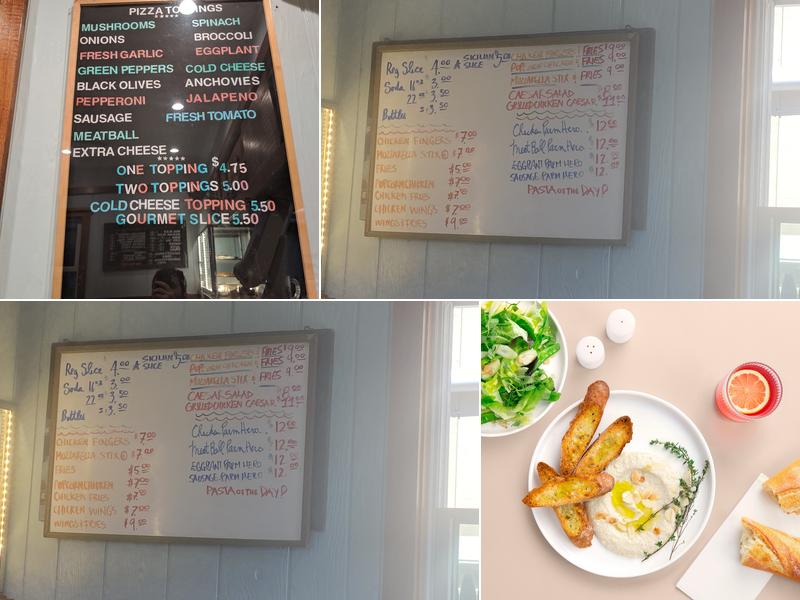 PIZZA TOPPINGS
*****
MUSHROOMS SPINACH
ONIONS BROCCOLI
FRESH GARLIC EGGPLANT
GREEN PEPPERS COLD CHEESE
BLACK OLIVES ANCHOVIES
PEPPERONI JALAPENO
SAUSAGE FRESH TOMATO
MEATBALL
EXTRA CHEESE
*****
ONE TOPPING $4.75
TWO TOPPINGS 5.00
COLD CHEESE TOPPING 5.50
GOURMET SLICE 5.50
Reg Slice 4.00
SICILIAN $5.00
A SLICE
Soda 16oz 3.00
22oz 3.50
Bottles $3.50
CHICKEN FINGERS $7.00
MOZZARELLA STIX $7.00
FRIES $5.00
POPCORN CHICKEN $7.00
CHICKEN FRIES $7.00
CHICKEN WINGS $7.00
WINGS & FRIES $9.00
CHICKEN FINGERS & FRIES 9.00
POPCORN CHICKEN & FRIES 9.00
MOZZARELLA STIX & FRIES 9.00
CAESAR SALAD
GRILLED CHICKEN CAESAR
Chicken Parm Hero $12.00
Meat Ball Parm Hero 12.00
EGGPLANT PARM HERO 12.00
SAUSAGE PARM HERO 12.
PASTA OF THE DAY
Reg Slice 4.00
SICILIAN $5.00
A SLICE
Soda 16oz 3.00
22oz 3.50
Bottles $3.50
CHICKEN FINGERS $7.00
MOZZARELLA STIX $7.00
FRIES $5.00
POPCORN CHICKEN $7.00
CHICKEN FRIES $7.00
CHICKEN WINGS $7.00
WINGS & FRIES $9.00
CHICKEN FINGERS & FRIES 9.00
POPCORN CHICKEN & FRIES 9.00
MOZZARELLA STIX & FRIES 9.00
CAESAR SALAD
GRILLED CHICKEN CAESAR
Chicken Parm Hero $12.00
Meat Ball Parm Hero 12.00
EGGPLANT PARM HERO 12.00
SAUSAGE PARM HERO 12.
PASTA OF THE DAY